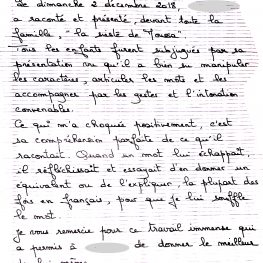 Le dimanche 2 décembre 2018,
a raconté et présenté, devant toute la
famille, "la sieste de Moussa".
Tous les enfants furent subjugués par sa
présentation vu qu'il a bien su manipuler
les caractères, articuler les mots et les
accompagner par les gestes et l'intonation
convenables.
Ce qui m'a choquée positivement, c'est
sa compréhension parfaite de ce qu'il
racontait. Quand un mot lui échappait,
il réfléchissait et essayait d'en donner un
équivalent ou de l'expliquer, la plupart des
fois en français, pour que je lui souffle
le mot.
Je vous remercie pour ce travail immense qui
a permis à de donner le meilleur
de lui-même.